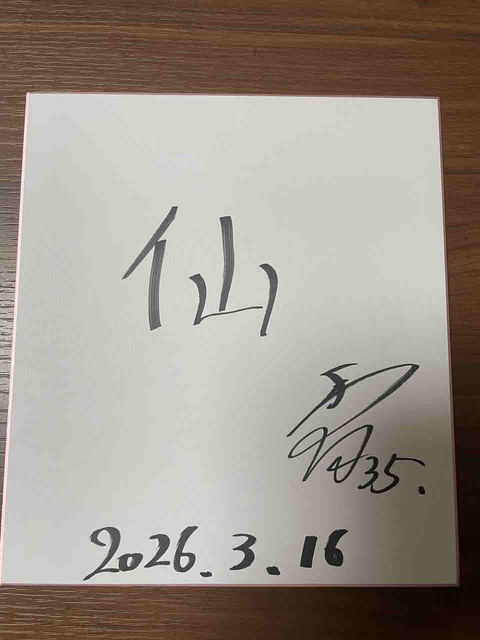 仙
35.
2026.3.16